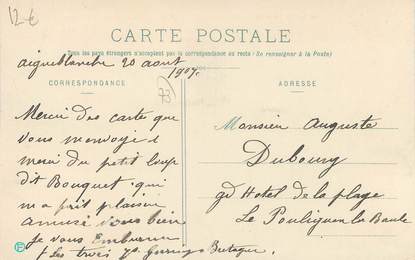 12 €
CARTE POSTALE
Tous les pays étrangers n'acceptent pas la correspondance au recto (Se renseigner à la Poste)
Aigueblanche 20 aout
1907.
CORRESPONDANCE
ADRESSE
73
Merci des cartes que
vous m'envoyés
merci du petit loup
dit Bouquet qui
m a fait plaisir
amusé vous bien
Je vous Embrasse
Les trois
Monsieur Auguste
Dubourg
gd Hotel de la plage
Le Pouliguen la Baule
Bretagne